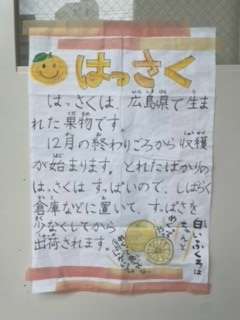 はっさく
はっさくは、広島県で生ま
れた果物です。
12月の終わりごろから収穫
が始まります。とれたばかりの
はっさくは すっぱいので、しばらく
倉庫などに置いて、すっぱさを
少なくしてから
出荷されます。
白いふくろは